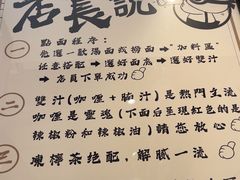 店長說
一
點面程序：
先選一款湯面或撈面→"加料區"
任意搭配→選好面底→選好雙汁
→店員下單成功
二
雙汁(咖喱+腩汁)是熱門主流
咖喱是靈魂(下面后呈現紅色的是
辣椒粉和辣椒油)請您放心
三
凍檸茶絕配，解膩一流